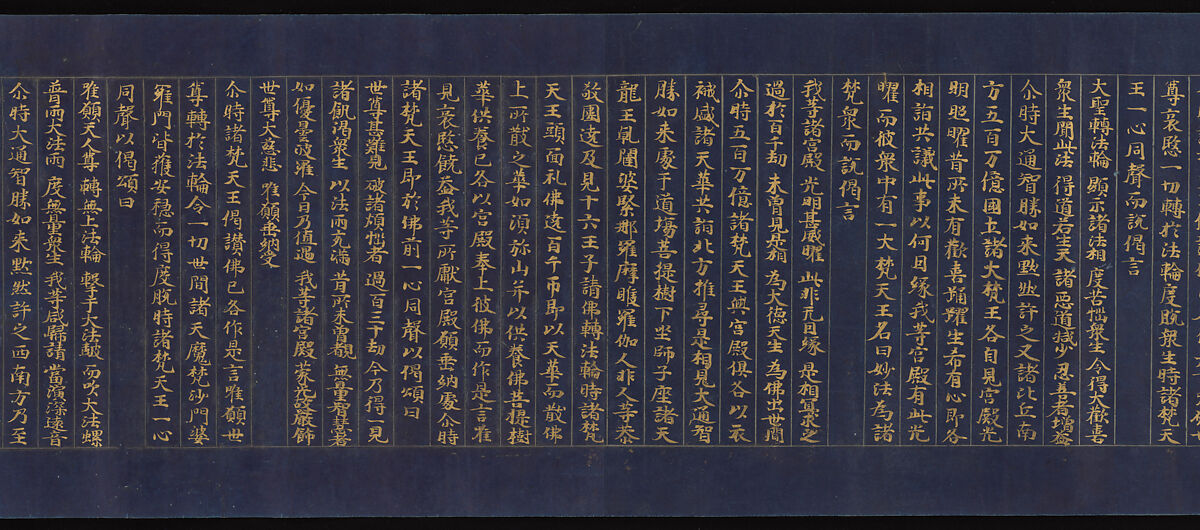 尊哀愍一切轉於法輪度脫衆生時諸梵天
王一心同聲而說偈言
大聖轉法輪 顯示諸法相 度苦惱衆生 令得大歡喜
衆生聞此法 得道若生天 諸惡道減少 忍善者增益
尒時大通智勝如來默然許之又諸比丘南
方五百万億國土諸大梵王各自見宮殿光
明照曜昔所未有歡喜踊躍生希有心即各
相詣共議此事以何因緣我等宮殿有此光
曜而彼衆中有一大梵天王名曰妙法為諸
梵衆而說偈言
我等諸宮殿 光明甚威曜 此非无因緣 是相宜求之
過於百千劫 未曾見是相 為大德天生 為佛出世間
尒時五百万億諸梵天王與宮殿俱各以衣
祴盛諸天華共詣北方推尋是相見大通智
勝如來處于道場菩提樹下坐師子座諸天
龍王乹闥婆緊那羅摩睺羅伽人非人等恭
敬圍遶及見十六王子請佛轉法輪時諸梵
天王頭面礼佛遶百千帀即以天華而散佛
上所散之華如須弥山并以供養佛菩提樹
華供養已各以宮殿奉上彼佛而作是言唯
見哀愍饒益我等所獻宮殿願垂納處尒時
諸梵天王即於佛前一心同聲以偈頌曰
世尊甚難見 破諸煩惱者 過百三十劫 今乃得一見
諸飢渴衆生 以法雨充滿 昔所未曾覩 無量智慧者
如優曇波羅 今日乃值遇 我等諸宮殿 蒙光故嚴飾
世尊大慈悲 唯願垂納受
尒時諸梵天王偈讚佛已各作是言唯願世
尊轉於法輪令一切世間諸天魔梵沙門婆
羅門皆獲安穩而得度脫時諸梵天王一心
同聲以偈頌曰
唯願天人尊 轉無上法輪 擊于大法鼓 而吹大法螺
普雨大法雨 度無量衆生 我等咸歸請 當演深遠音
尒時大通智勝如來默然許之西南方乃至